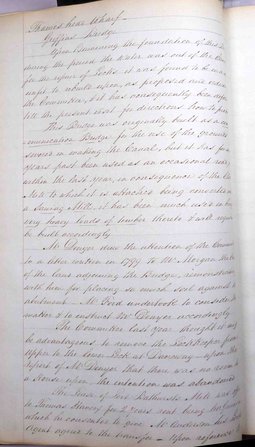 Thames side Wharf
Griffins bridge
Upon examining the foundation of this
during the period the water was out of the
for the repair of Locks it was found it was
to rebuild upon, as proposed and
the Committee, & it has consequently been
till the present next for directions how to
This Bridge was originally built as a
munication Bridge for the use of the grounds
in making the Canal, but it has for
years past been used as an occasional road,
within the last year, in consequence of the
Mill to which it is attached being converted in
a Sawing Mill, it has been much used in
very heavy loads of timber thereto & will require
be built accordingly
Mr Denyer drew the attention of the Committee
to a letter written in 1799 to Mr Morgan the
of the land adjoining the Bridge, remonstrating
with him for placing so much soil against the
abutment — Mr Ford undertook to consider the
matter & to instruct Mr Denyer accordingly
The Committee last year thought it might
be advantageous to remove the Lockkeeper from
upper to the lower Lock at Daneway — upon the
report of Mr Denyer that there was no room to
a House upon the intention was abandoned
The lease of Bathursts Mill was
to Thomas Harvey for 2 years rent being
which he consented to give Mr Anderson his
Agent agreed to the transfer — Upon reference